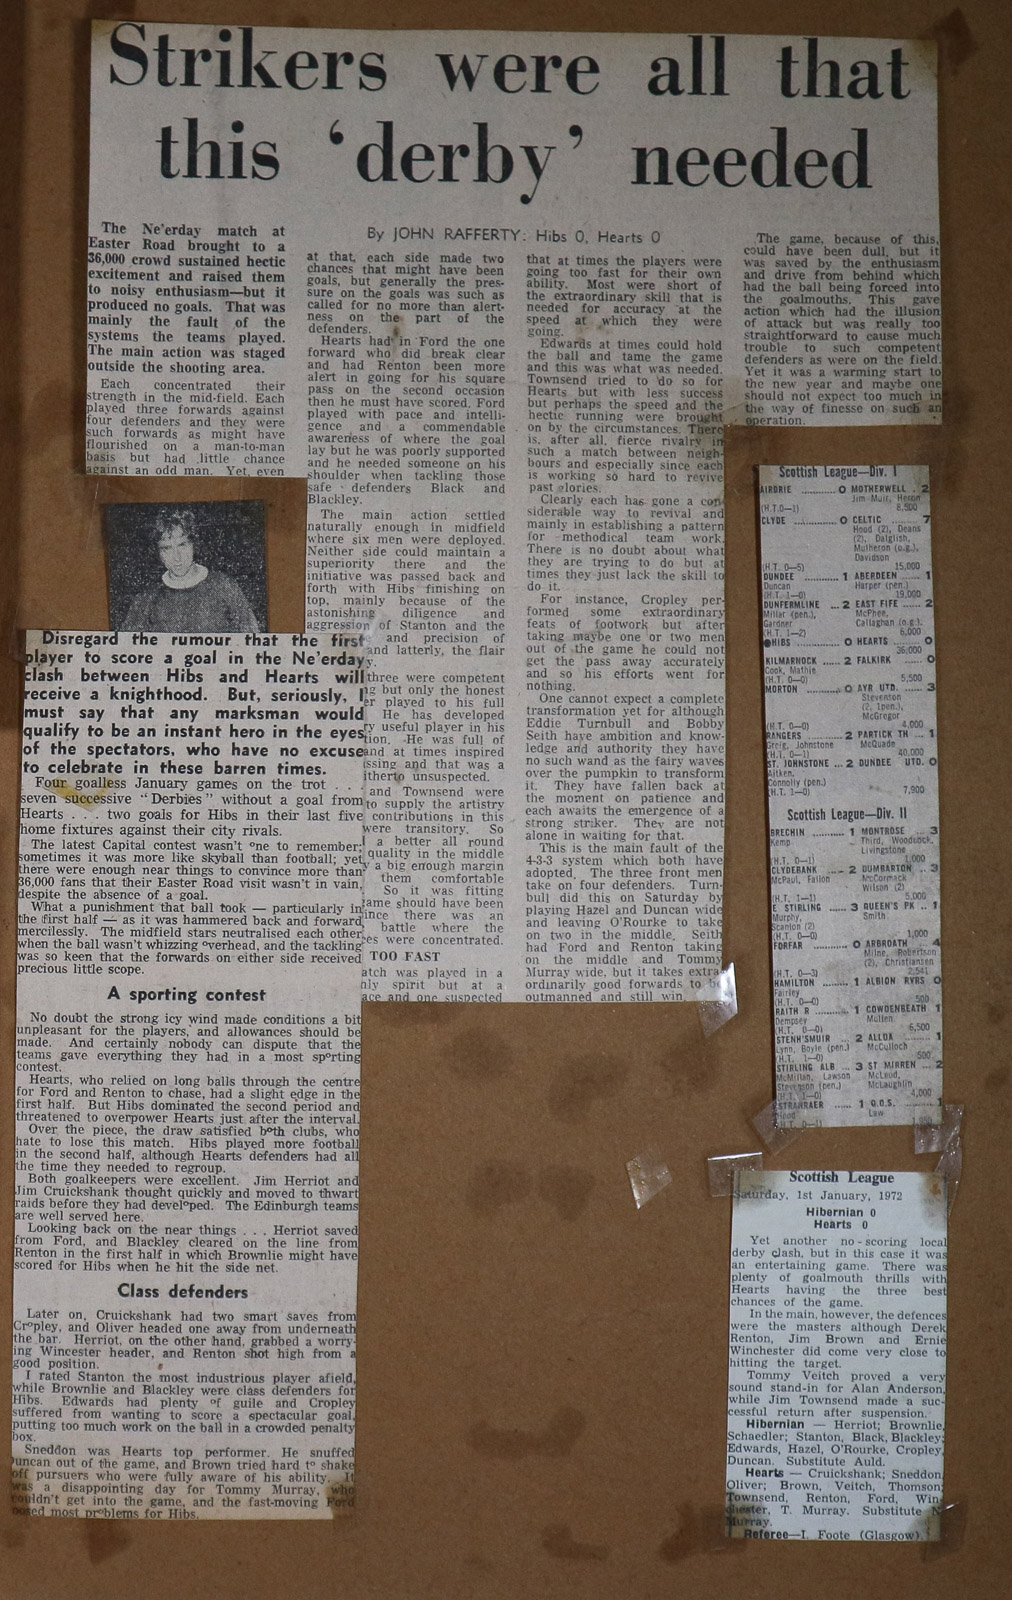 Strikers were all that
this ‘derby’ needed
By JOHN RAFFERTY: Hibs 0, Hearts 0
The Ne'erday match at
Easter Road brought to a
36,000 crowd sustained hectic
excitement and raised them
to noisy enthusiasm—but it
produced no goals. That was
mainly the fault of the
systems the teams played.
The main action was staged
outside the shooting area.
Each concentrated their
strength in the mid-field. Each
played three forwards against
four defenders and they were
such forwards as might have
flourished on a man-to-man
basis but had little chance
against an odd man. Yet, even
at that, each side made two
chances that might have been
goals, but generally the pres-
sure on the goals was such as
called for no more than alert-
ness on the part of the
defenders.
Hearts had in Ford the one
forward who did break clear
and had Renton been more
alert in going for his square
pass on the second occasion
then he must have scored. Ford
played with pace and intelli-
gence and a commendable
awareness of where the goal
lay but he was poorly supported
and he needed someone on his
shoulder when tackling those
safe defenders Black and
Blackley.
The main action settled
naturally enough in midfield
where six men were deployed.
Neither side could maintain a
superiority there and the
initiative was passed back and
forth with Hibs finishing on
top, mainly because of the
astonishing diligence and
aggression of Stanton and the
and precision of
and latterly, the flair
y.
three were competent
but only the honest
er played to his full
He has developed
ry useful player in his
tion. He was full of
and at times inspired
ssing and that was a
itherto unsuspected.
and Townsend were
to supply the artistry
contributions in this
were transitory. So
a better all round
quality in the middle
y a big enough margin
them comfortable
So it was fitting
ame should have been
ince there was an
battle where the
ces were concerned.
TOO FAST
atch was played in a
nly spirit but at a
ace and one suspected
that at times the players were
going too fast for their own
ability. Most were short of
the extraordinary skill that is
needed for accuracy at the
speed at which they were
going.
Edwards at times could hold
the ball and tame the game
and this was what was needed.
Townsend tried to do so for
Hearts but with less success
but perhaps the speed and the
hectic running were brought
on by the circumstances. There
is, after all, fierce rivalry in
such a match between neigh-
bours and especially since each
is working so hard to revive
past glories.
Clearly each has gone a con-
siderable way to revival and
mainly in establishing a pattern
for methodical team work.
There is no doubt about what
they are trying to do but at
times they just lack the skill to
do it.
For instance, Cropley per-
formed some extraordinary
feats of footwork but after
taking maybe one or two men
out of the game he could not
get the pass away accurately
and so his efforts went for
nothing.
One cannot expect a complete
transformation yet for although
Eddie Turnbull and Bobby
Seith have ambition and know-
ledge and authority they have
no such wand as the fairy waves
over the pumpkin to transform
it. They have fallen back at
the moment on patience and
each awaits the emergence of a
strong striker. They are not
alone in waiting for that.
This is the main fault of the
4-3-3 system which both have
adopted. The three front men
take on four defenders. Turn-
bull did this on Saturday by
playing Hazel and Duncan wide
and leaving O'Rourke to take
on two in the middle. Seith
had Ford and Renton taking
on the middle and Tommy
Murray wide, but it takes extra
ordinarily good forwards to be
outmanned and still win.
The game, because of this,
could have been dull, but it
was saved by the enthusiasm
and drive from behind which
had the ball being forced into
the goalmouths. This gave
action which had the illusion
of attack but was really too
straightforward to cause much
trouble to such competent
defenders as were on the field.
Yet it was a warming start to
the new year and maybe one
should not expect too much in
the way of finesse on such an
operation.
Disregard the rumour that the first
player to score a goal in the Ne'erday
clash between Hibs and Hearts will
receive a knighthood. But, seriously, I
must say that any marksman would
qualify to be an instant hero in the eyes
of the spectators, who have no excuse
to celebrate in these barren times.
Four goalless January games on the trot . . .
seven successive “Derbies” without a goal from
Hearts . . . two goals for Hibs in their last five
home fixtures against their city rivals.
The latest Capital contest wasn't one to remember;
sometimes it was more like skyball than football; yet
there were enough near things to convince more than
36,000 fans that their Easter Road visit wasn't in vain,
despite the absence of a goal.
What a punishment that ball took — particularly in
the first half — as it was hammered back and forward
mercilessly. The midfield stars neutralised each other,
when the ball wasn't whizzing overhead, and the tackling
was so keen that the forwards on either side received
precious little scope.
A sporting contest
No doubt the strong icy wind made conditions a bit
unpleasant for the players, and allowances should be
made. And certainly nobody can dispute that the
teams gave everything they had in a most sporting
contest.
Hearts, who relied on long balls through the centre
for Ford and Renton to chase, had a slight edge in the
first half. But Hibs dominated the second period and
threatened to overpower Hearts just after the interval.
Over the piece, the draw satisfied both clubs, who
hate to lose this match. Hibs played more football
in the second half, although Hearts defenders had all
the time they needed to regroup.
Both goalkeepers were excellent. Jim Herriot and
Jim Cruickshank thought quickly and moved to thwart
raids before they had developed. The Edinburgh teams
are well served here.
Looking back on the near things . . . Herriot saved
from Ford, and Blackley cleared on the line from
Renton in the first half in which Brownlie might have
scored for Hibs when he hit the side net.
Class defenders
Later on, Cruickshank had two smart saves from
Cropley, and Oliver headed one away from underneath
the bar. Herriot, on the other hand, grabbed a worry-
ing Wincester header, and Renton shot high from a
good position.
I rated Stanton the most industrious player afield,
while Brownlie and Blackley were class defenders for
Hibs. Edwards had plenty of guile and Cropley
suffered from wanting to score a spectacular goal,
putting too much work on the ball in a crowded penalty
box.
Sneddon was Hearts top performer. He snuffed
Duncan out of the game, and Brown tried hard to shake
off pursuers who were fully aware of his ability. It
was a disappointing day for Tommy Murray, who
couldn't get into the game, and the fast-moving Ford
posed most problems for Hibs.
Scottish League—Div. I
AIRDRIE ............ 0 MOTHERWELL . 2
Jim Muir, Heron
(H.T. 0—1) 8,500
CLYDE ............ 0 CELTIC ......... 7
Hood (2), Deans
(2), Dalglish,
Mulheron (o.g.),
Davidson
(H.T. 0—5) 15,000
DUNDEE ......... 1 ABERDEEN ...... 1
Duncan Harper (pen.)
(H.T. 1—0) 19,000
DUNFERMLINE ... 2 EAST FIFE ...... 2
Millar (pen.), McPhee,
Gardner Callaghan (o.g.)
(H.T. 1—2) 6,000
HIBS ............ 0 HEARTS ......... 0
36,000
KILMARNOCK ... 2 FALKIRK ...... 0
Cook, Mathie
(H.T. 0—0) 5,500
MORTON ......... 0 AYR UTD. ...... 3
Stevenson
(2, 1pen.),
McGregor
(H.T. 0—0) 4,000
RANGERS ......... 2 PARTICK TH ... 1
Greig, Johnstone McQuade
(H.T. 0—1) 40,000
ST. JOHNSTONE ... 2 DUNDEE UTD. 0
Aitken,
Connolly (pen.)
(H.T. 1—0) 7,900
Scottish League—Div. II
BRECHIN ......... 1 MONTROSE ... 3
Kemp Third, Woodsock,
Livingstone
(H.T. 0—1) 1,000
CLYDEBANK ...... 2 DUMBARTON ... 3
McPaul, Fallon McCormack
Wilson (2)
(H.T. 1—1) 5,000
E STIRLING ...... 3 QUEEN'S PK ... 1
Murphy, Smith
Scanlon (2)
(H.T. 0—0) 1,000
FORFAR ......... 0 ARBROATH ...... 4
Milne, Robertson
(2), Christiansen
(H.T. 0—3) 2,541
HAMILTON ...... 1 ALBION RVRS 0
Fairley
(H.T. 0—0) 500
RAITH R ......... 1 COWDENBEATH 1
Dempsey Mullen
(H.T. 0—0) 6,500
STENH'SMUIR ... 2 ALLOA ......... 1
Lynn, Boyle (pen.) McCulloch
(H.T. 1—0) 500
STIRLING ALB ... 3 ST MIRREN ... 2
McMillan, Lawson McLeod,
Stevenson (pen.) McLaughlin
(H.T. 1—0) 4,000
STRANRAER ...... 1 Q.O.S. ......... 1
Hood Law
(H.T. 0—1)
Scottish League
Saturday, 1st January, 1972
Hibernian 0
Hearts 0
Yet another no-scoring local
derby clash, but in this case it was
an entertaining game. There was
plenty of goalmouth thrills with
Hearts having the three best
chances of the game.
In the main, however, the defences
were the masters although Derek
Renton, Jim Brown and Ernie
Winchester did come very close to
hitting the target.
Tommy Veitch proved a very
sound stand-in for Alan Anderson,
while Jim Townsend made a suc-
cessful return after suspension.
Hibernian — Herriot; Brownlie,
Schaedler; Stanton, Black, Blackley;
Edwards, Hazel, O'Rourke, Cropley,
Duncan. Substitute Auld.
Hearts — Cruickshank; Sneddon,
Oliver; Brown, Veitch, Thomson;
Townsend, Renton, Ford, Win-
chester, T. Murray. Substitute N.
Murray.
Referee—I. Foote (Glasgow).